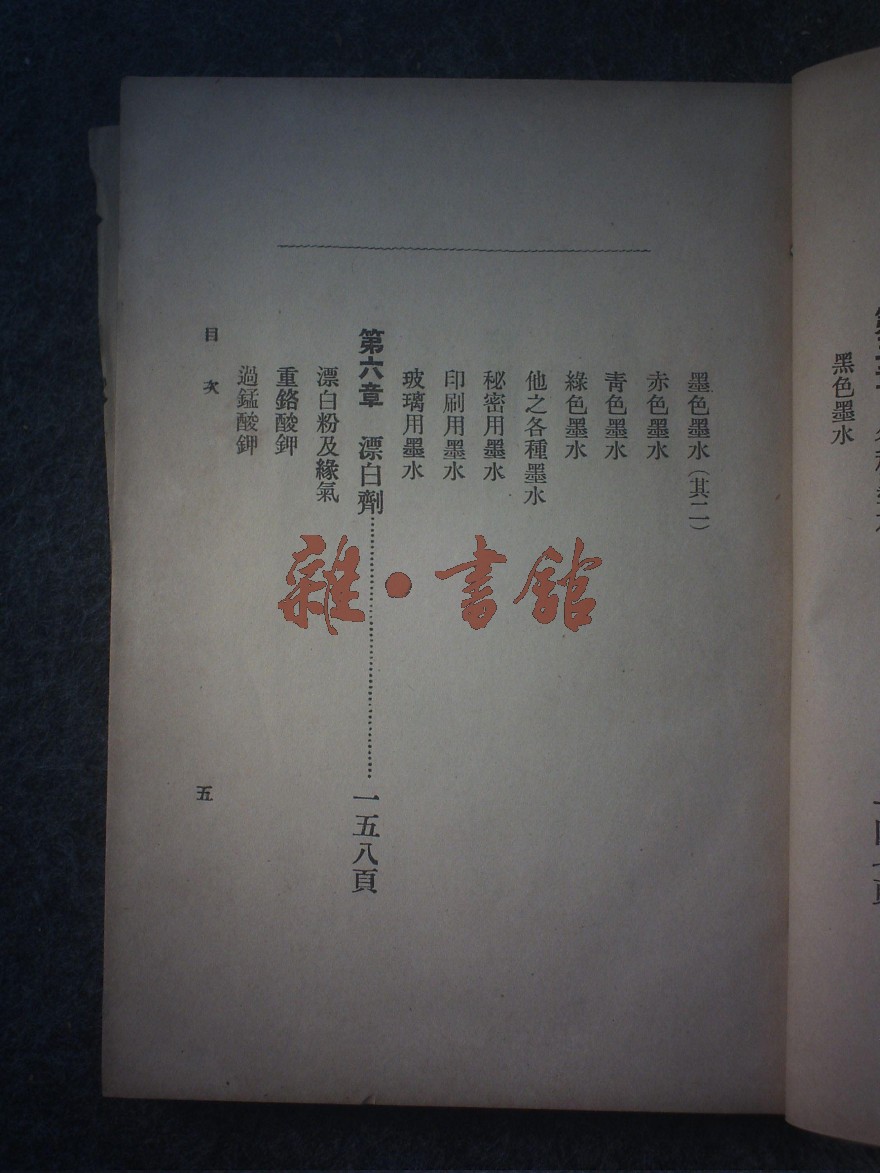 黑色墨水
墨色墨水(其二)
赤色墨水
靑色墨水
綠色墨水
他之各種墨水
秘密用墨水
印刷用墨水
玻璃用墨水
第六章 漂白劑……一五八頁
漂白粉及緣氣
重鉻酸鉀
過錳酸鉀
目次
五
雜·書館